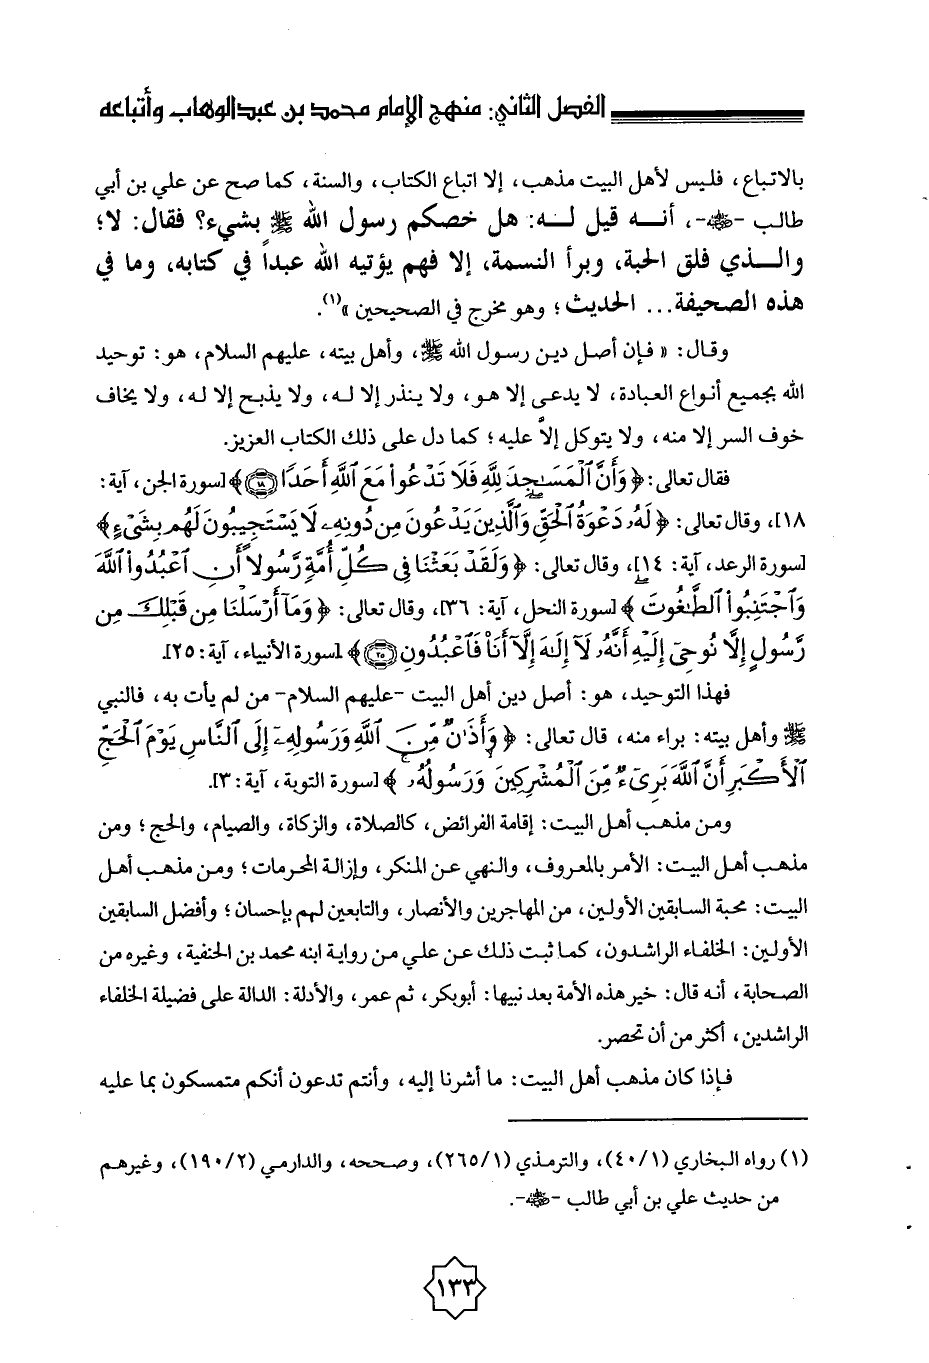 الفصل الثاني: منهج الإمام محمد بن عبدالوهاب وأتباعه
بالاتباع، فليس لأهل البيت مذهب، إلا اتباع الكتاب، والسنة، كما صح عن علي بن أبي
طالب -رضي الله عنه-، أنــه قيل لــه: هل خصكم رسول الله ﷺ بشيء؟ فقال: لا؛
والــذي فلق الحبة، وبرأ النسمة، إلا فهم يؤتيه الله عبداً في كتابه، وما في
هذه الصحيفة... الحديث؛ وهو مخرج في الصحيحين»(١).
وقال: «فإن أصل دين رسول الله ﷺ، وأهل بيته، عليهم السلام، هو: توحيد
الله بجميع أنواع العبادة، لا يدعى إلا هو، ولا ينذر إلا له، ولا يذبح إلا له، ولا يخاف
خوف السر إلا منه، ولا يتوكل إلاَّ عليه؛ كما دل على ذلك الكتاب العزيز.
فقال تعالى: ﴿وَأَنَّ ٱلْمَسَٰجِدَ لِلَّهِ فَلَا تَدْعُوا۟ مَعَ ٱللَّهِ أَحَدًا ۝١٨﴾ [سورة الجن، آية:
١٨]، وقال تعالى: ﴿لَهُۥ دَعْوَةُ ٱلْحَقِّ ۖ وَٱلَّذِينَ يَدْعُونَ مِن دُونِهِۦ لَا يَسْتَجِيبُونَ لَهُم بِشَىْءٍ﴾
[سورة الرعد، آية: ١٤]، وقال تعالى: ﴿وَلَقَدْ بَعَثْنَا فِى كُلِّ أُمَّةٍ رَّسُولاً أَنِ ٱعْبُدُوا۟ ٱللَّهَ
وَٱجْتَنِبُوا۟ ٱلطَّٰغُوتَ ۖ﴾ [سورة النحل، آية: ٣٦]، وقال تعالى: ﴿وَمَآ أَرْسَلْنَا مِن قَبْلِكَ مِن
رَّسُولٍ إِلَّا نُوحِىٓ إِلَيْهِ أَنَّهُۥ لَآ إِلَٰهَ إِلَّآ أَنَا۠ فَٱعْبُدُونِ ۝٢٥﴾ [سورة الأنبياء، آية: ٢٥].
فهذا التوحيد، هو: أصل دين أهل البيت -عليهم السلام- من لم يأت به، فالنبي
ﷺ وأهل بيته: براء منه، قال تعالى: ﴿وَأَذَٰنٌ مِّنَ ٱللَّهِ وَرَسُولِهِۦٓ إِلَى ٱلنَّاسِ يَوْمَ ٱلْحَجِّ
ٱلْأَكْبَرِ أَنَّ ٱللَّهَ بَرِىٓءٌ مِّنَ ٱلْمُشْرِكِينَ ۙ وَرَسُولُهُۥ ۚ﴾ [سورة التوبة، آية: ٣].
ومن مذهب أهل البيت: إقامة الفرائض، كالصلاة، والزكاة، والصيام، والحج؛ ومن
مذهب أهل البيت: الأمر بالمعروف، والنهي عن المنكر، وإزالة المحرمات؛ ومن مذهب أهل
البيت: محبة السابقين الأولين، من المهاجرين والأنصار، والتابعين لهم بإحسان؛ وأفضل السابقين
الأولين: الخلفاء الراشدون، كما ثبت ذلك عن علي من رواية ابنه محمد بن الحنفية، وغيره من
الصحابة، أنه قال: خير هذه الأمة بعد نبيها: أبوبكر، ثم عمر، والأدلة: الدالة على فضيلة الخلفاء
الراشدين، أكثر من أن تحصر.
فإذا كان مذهب أهل البيت: ما أشرنا إليه، وأنتم تدعون أنكم متمسكون بما عليه
(١) رواه البخاري (٤٠/١)، والترمذي (٢٦٥/١)، وصححه، والدارمي (١٩٠/٢)، وغيرهم
من حديث علي بن أبي طالب -رضي الله عنه-.
١٣٣